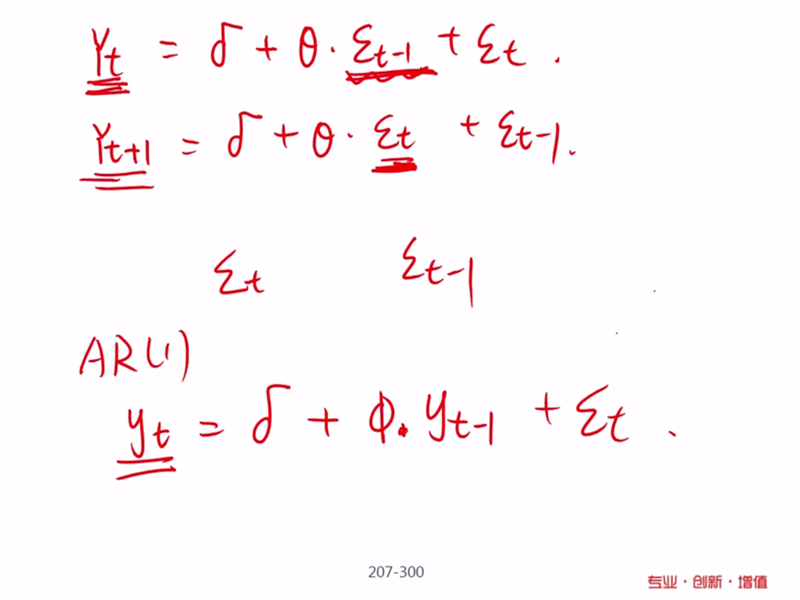 Yt = δ + θ · Σt-1 + Σt .
Yt+1 = δ + θ · Σt + Σt-1 .
Σt Σt-1
AR(1)
yt = δ + φ . yt-1 + Σt .
207-300
专业 · 创新 · 增值